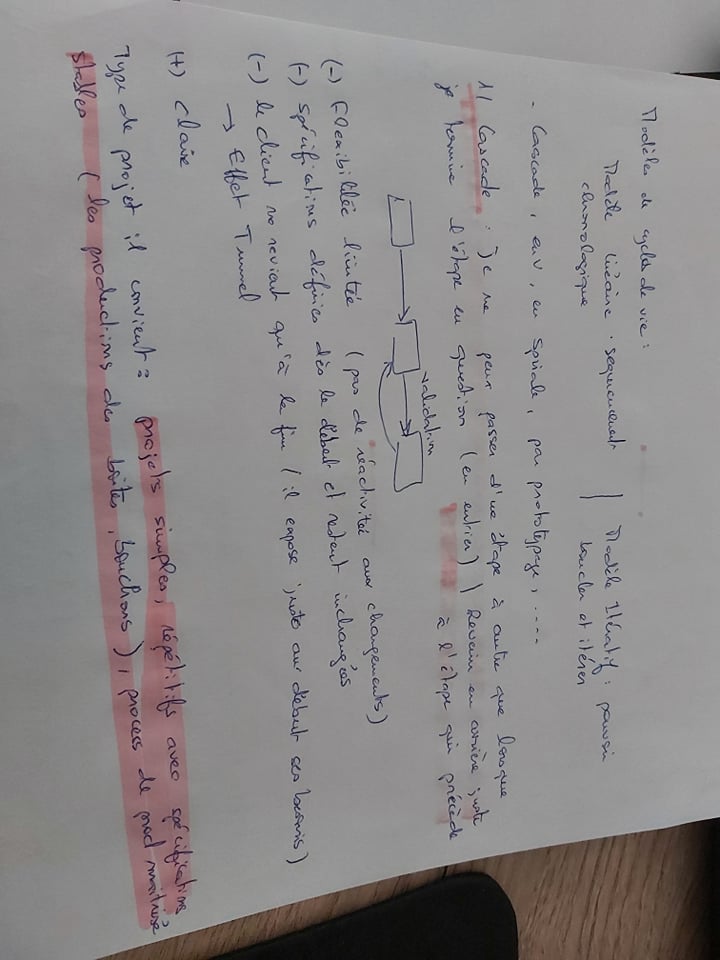 Modèles de cycles de vie :
Modèle linéaire . sequencement chronologique | Modèle Itératif : pouvoir boucler et itérer
- Cascade, en V, en spirale, par prototypage, ....
1/ Cascade : Je ne peux passer d'une étape à autre que lorsque
je termine l'étape en question (en entier) | Revenir en arrière juste
à l'étape qui précède
validation
(-) Flexibilitée limitée (pas de réactivitée aux changements)
(-) spécifications définies dès le début et restent inchangées
(-) le client ne revient qu'à la fin (il expose juste au début ses besoins)
→ Effet Tunnel
(+) Claire
Type de projet il convient : projets simples, répétitifs avec spécifications
stables (les productions des boites, bouchons), process de prod maitrisé